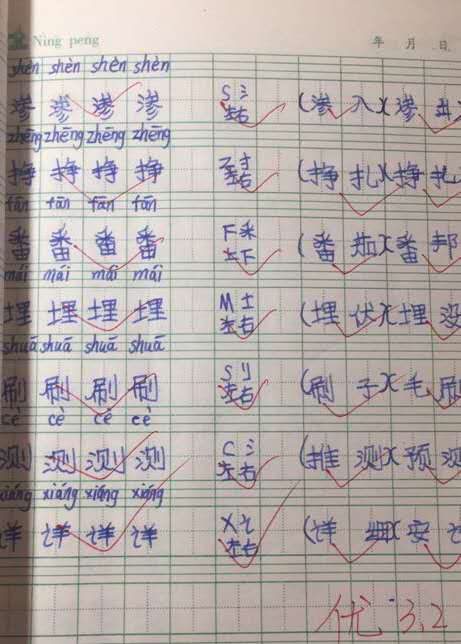 Ning peng 年 月 日
shèn shèn shèn shèn
渗 渗 渗 渗 S 氵 左右 (渗 入)(渗 出
zhēng zhēng zhēng zhēng
挣 挣 挣 挣 Z 扌 左右 (挣 扎)(挣 扎
fān fān fān fān
番 番 番 番 F 釆 上下 (番 茄)(番 邦
mái mái mái mái
埋 埋 埋 埋 M 土 左右 (埋 伏)(埋 没
shuā shuā shuā shuā
刷 刷 刷 刷 S 刂 左右 (刷 子)(毛 刷
cè cè cè cè
测 测 测 测 C 氵 左右 (推 测)(预 测
xiáng xiáng xiáng xiáng
详 详 详 详 X 讠 左右 (详 细)(安 详
优 3.2